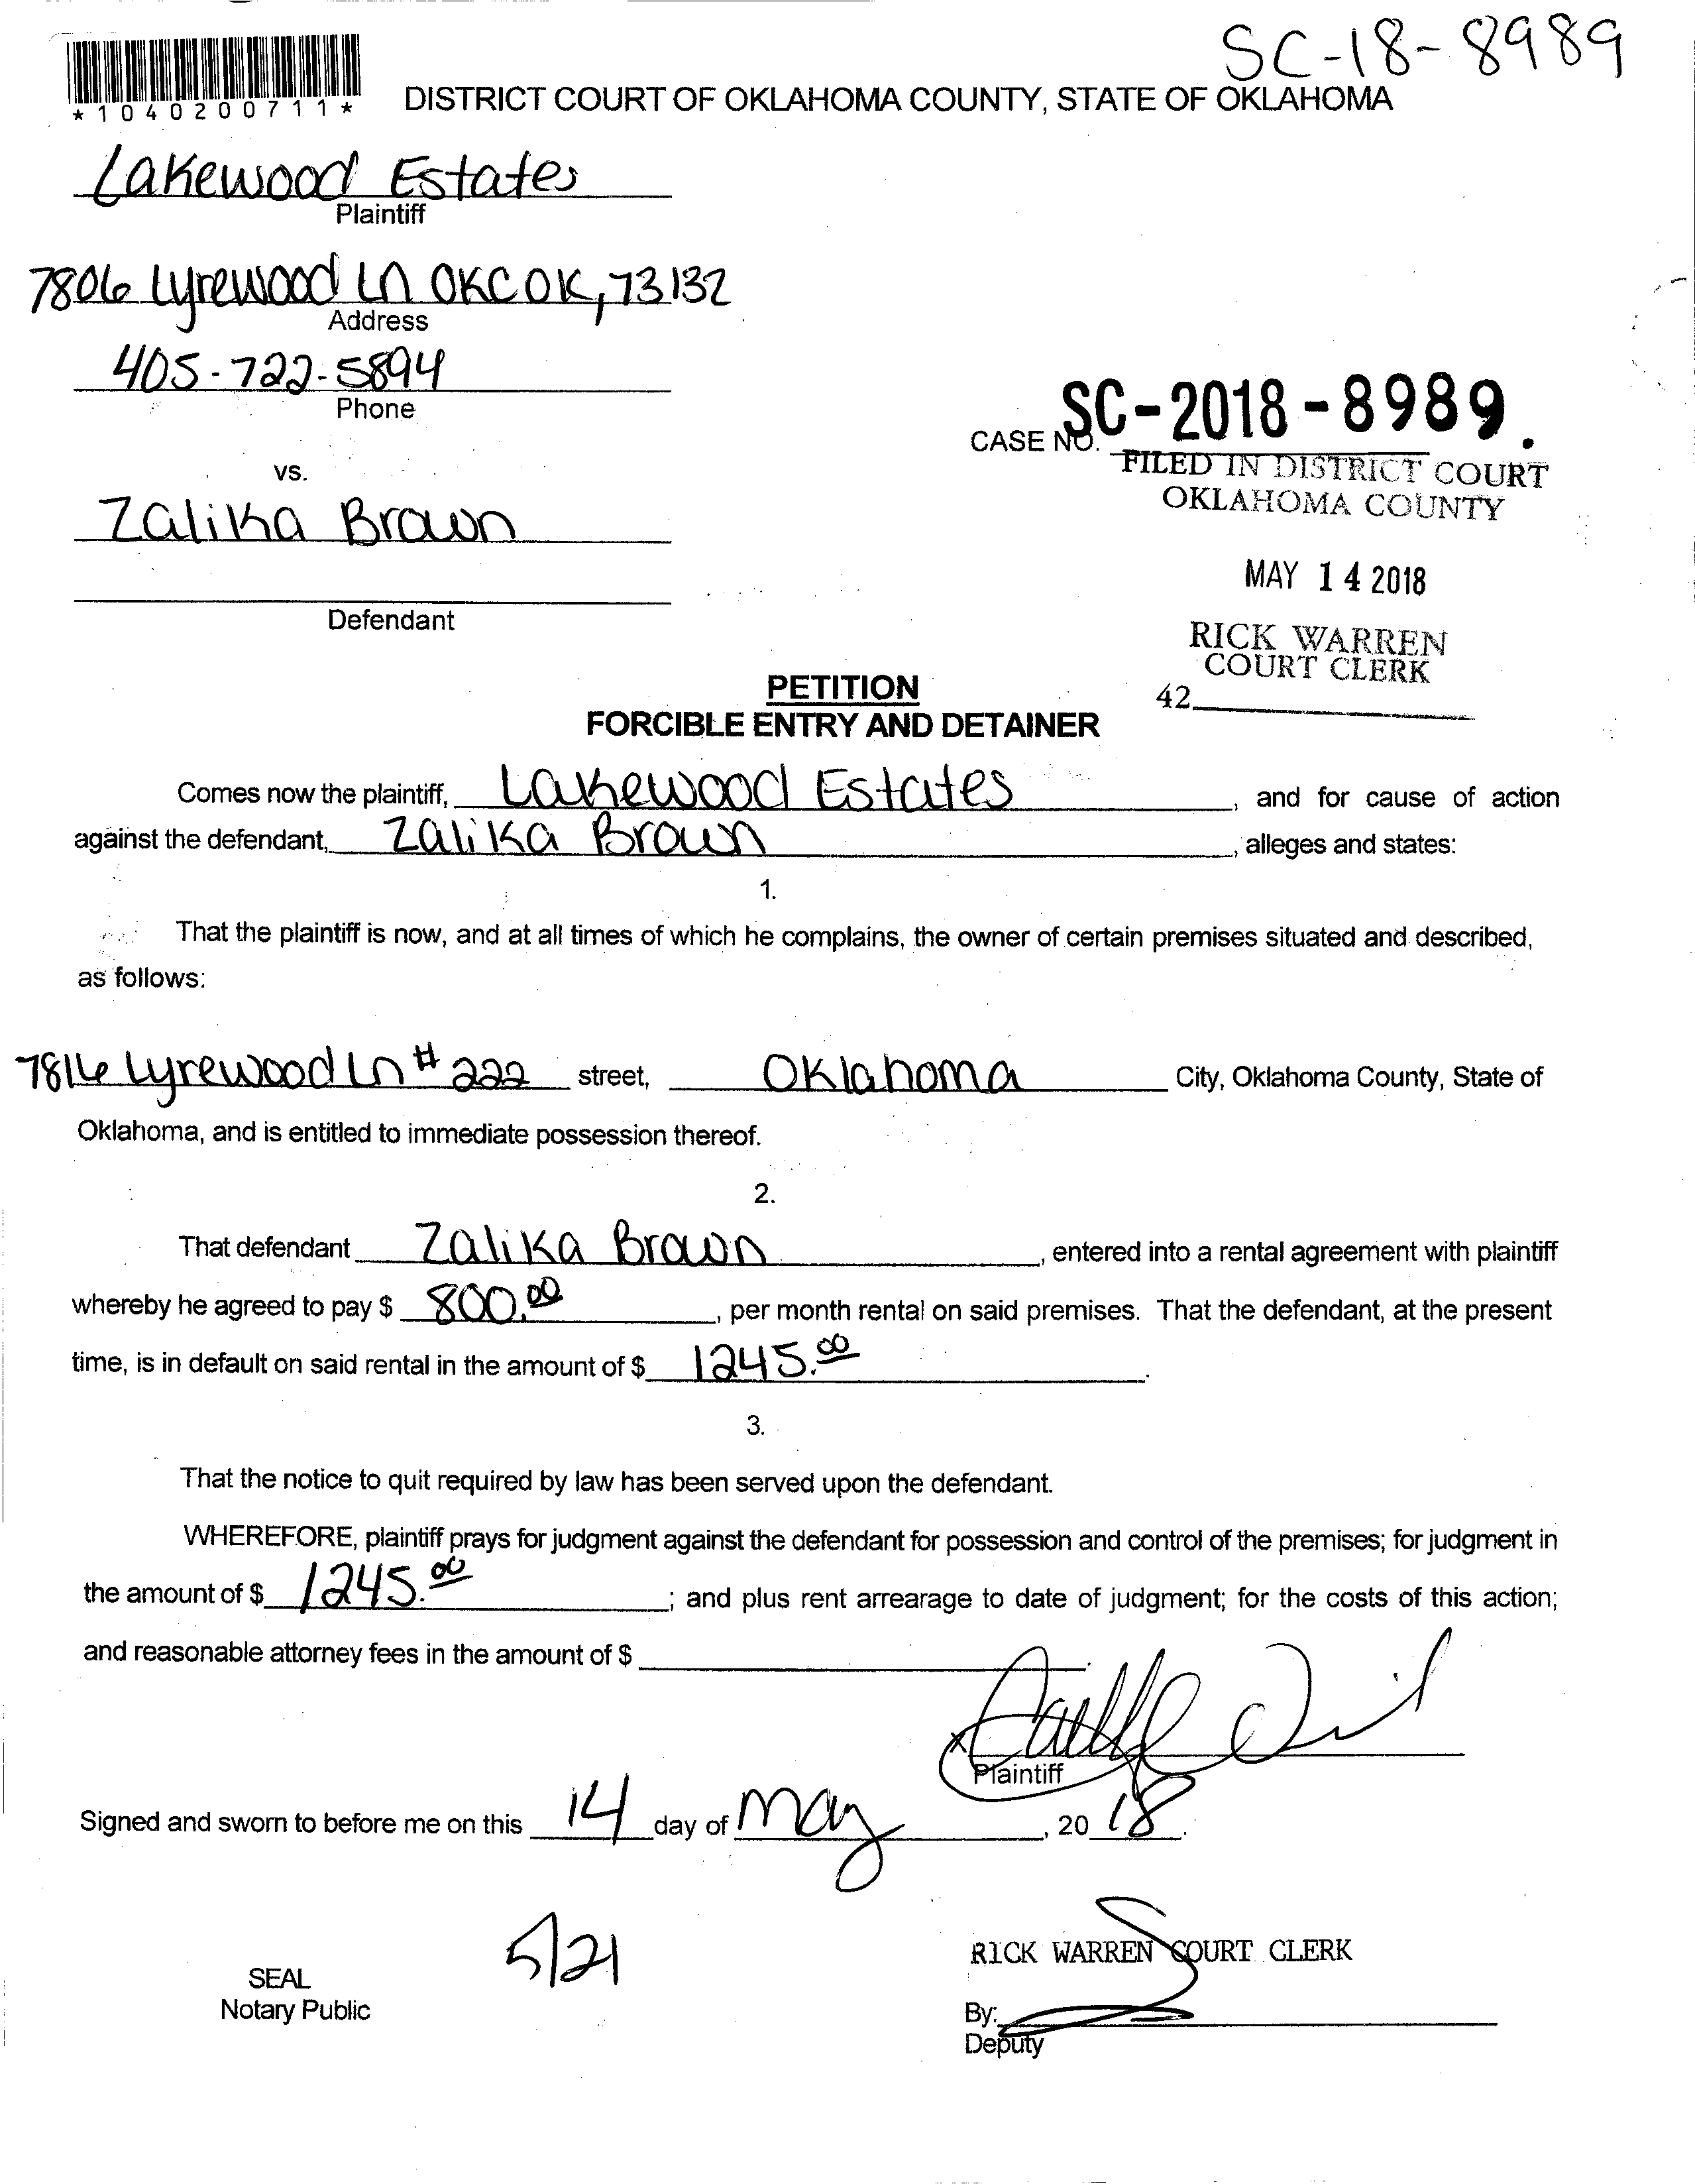 SC-18-8989
*1040200711*
DISTRICT COURT OF OKLAHOMA COUNTY, STATE OF OKLAHOMA
Lakewood Estates
Plaintiff
7806 Lyrewood Ln OKC OK, 73132
Address
405-722-5894
Phone
CASE NO. SC-2018-8989.
FILED IN DISTRICT COURT
OKLAHOMA COUNTY
vs.
Zalika Brown
MAY 14 2018
Defendant
RICK WARREN
COURT CLERK
42
PETITION
FORCIBLE ENTRY AND DETAINER
Comes now the plaintiff, Lakewood Estates, and for cause of action
against the defendant, Zalika Brown, alleges and states:
1.
That the plaintiff is now, and at all times of which he complains, the owner of certain premises situated and described,
as follows:
7816 Lyrewood Ln # 222 street, Oklahoma City, Oklahoma County, State of
Oklahoma, and is entitled to immediate possession thereof.
2.
That defendant Zalika Brown, entered into a rental agreement with plaintiff
whereby he agreed to pay $ 800.00, per month rental on said premises. That the defendant, at the present
time, is in default on said rental in the amount of $ 1245.00.
3.
That the notice to quit required by law has been served upon the defendant.
WHEREFORE, plaintiff prays for judgment against the defendant for possession and control of the premises; for judgment in
the amount of $ 1245.00; and plus rent arrearage to date of judgment; for the costs of this action;
and reasonable attorney fees in the amount of $ .
x
Plaintiff
Signed and sworn to before me on this 14 day of May, 2018.
5/21
RICK WARREN COURT CLERK
SEAL
Notary Public
By:
Deputy